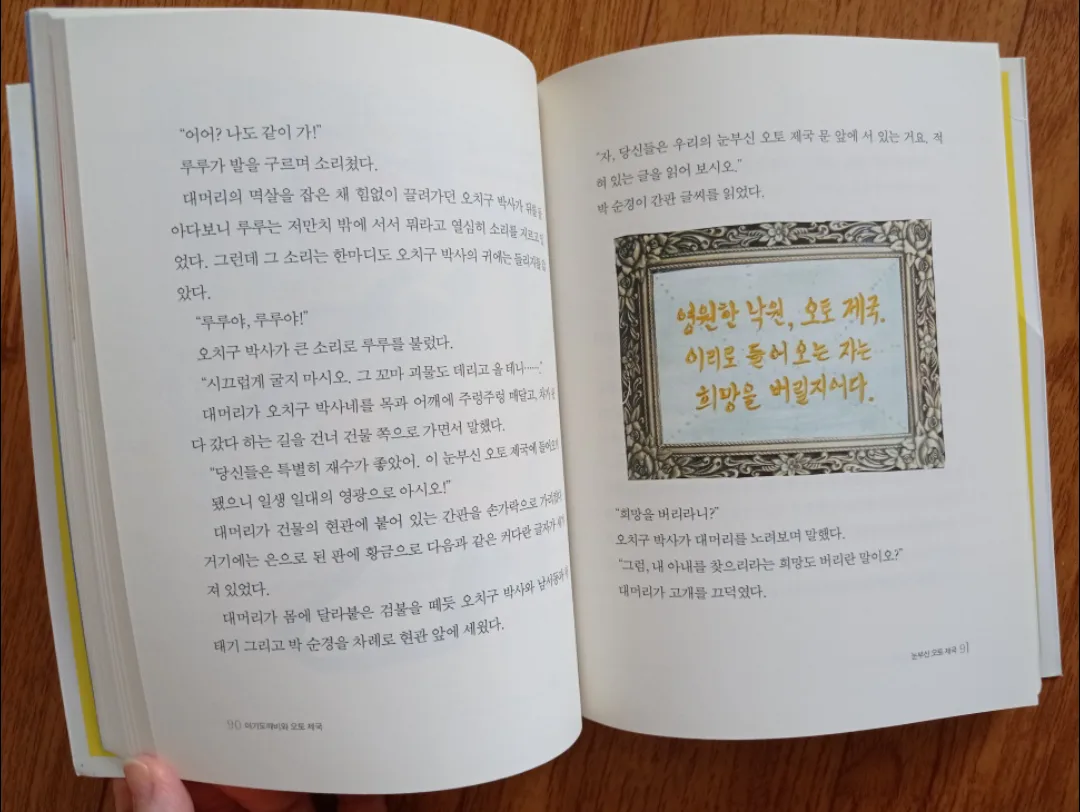 "어어? 나도 같이 가!"
루루가 발을 구르며 소리쳤다.
대머리의 멱살을 잡은 채 힘없이 끌려가던 오치구 박사가 뒤를 돌
아다보니 루루는 저만치 밖에 서서 뭐라고 열심히 소리를 지르고 있
었다. 그런데 그 소리는 한마디도 오치구 박사의 귀에는 들리지를 않
았다.
"루루야, 루루야!"
오치구 박사가 큰 소리로 루루를 불렀다.
"시끄럽게 굴지 마시오. 그 꼬마 괴물도 데리고 올 테니……."
대머리가 오치구 박사네를 목과 어깨에 주렁주렁 매달고, 차가
다 갔다 하는 길을 건너 건물 쪽으로 가면서 말했다.
"당신들은 특별히 재수가 좋았어. 이 눈부신 오토 제국에 들어오게
됐으니 일생 일대의 영광으로 아시오!"
대머리가 건물의 현관에 붙어 있는 간판을 손가락으로 가리켰다.
거기에는 은으로 된 판에 황금으로 다음과 같은 커다란 글자가 새겨
져 있었다.
대머리가 몸에 달라붙은 검불을 떼듯 오치구 박사와
태기 그리고 박 순경을 차례로 현관 앞에 세웠다.
90 아기도깨비와 오토 제국
"자, 당신들은 우리의 눈부신 오토 제국 문 앞에 서 있는 거요. 적
혀 있는 글을 읽어 보시오."
박 순경이 간판 글씨를 읽었다.
영원한 낙원, 오토 제국.
이리로 들어오는 자는
희망을 버릴지어다.
"희망을 버리라니?"
오치구 박사가 대머리를 노려보며 말했다.
"그럼, 내 아내를 찾으리라는 희망도 버리란 말이오?"
대머리가 고개를 끄덕였다.
눈부신 오토 제국 91